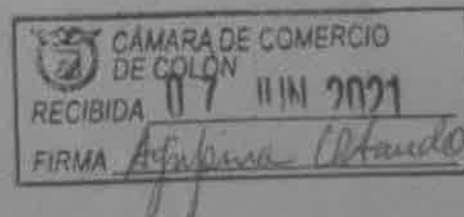 CÁMARA DE COMERCIO
DE COLÓN
RECIBIDA 07 JUN 2021
FIRMA